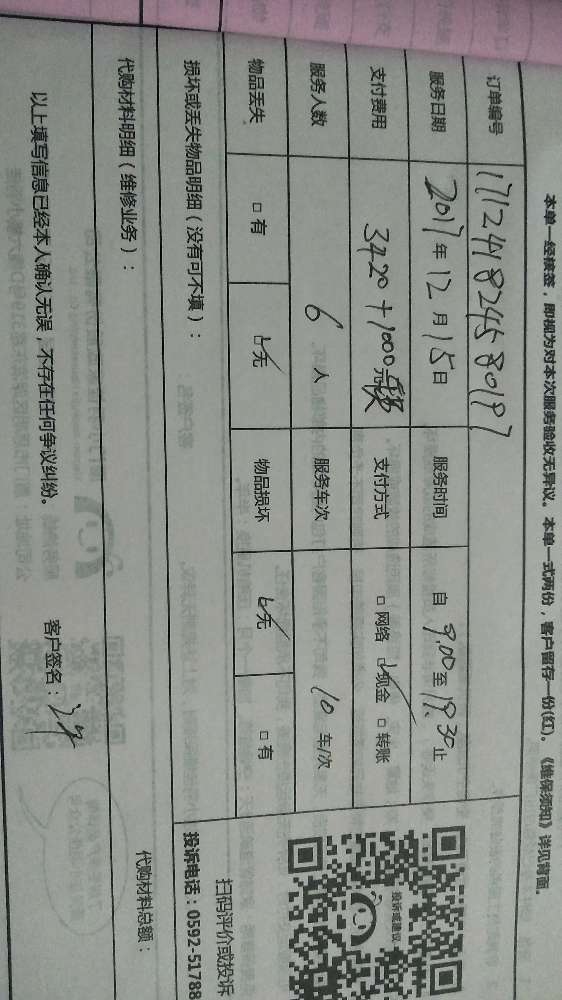 本单一经核签，即视为对本次服务验收无异议。本单一式两份，客户留存一份(红)。《维保须知》详见背面。
订单编号 171241824580197
服务日期 2017年12月15日 服务时间 自 9.00至19.30止
支付费用 3420+1000元 支付方式 □网络 □现金 □转账
服务人数 6人 服务车次 10车/次
物品丢失 □有 □无 物品损坏 □无 □有
投诉或建议
扫码评价或投诉
投诉电话：0592-51788
损坏或丢失物品明细（没有可不填）：
代购材料明细（维修业务）： 代购材料总额：
以上填写信息已经本人确认无误，不存在任何争议纠纷。 客户签名：